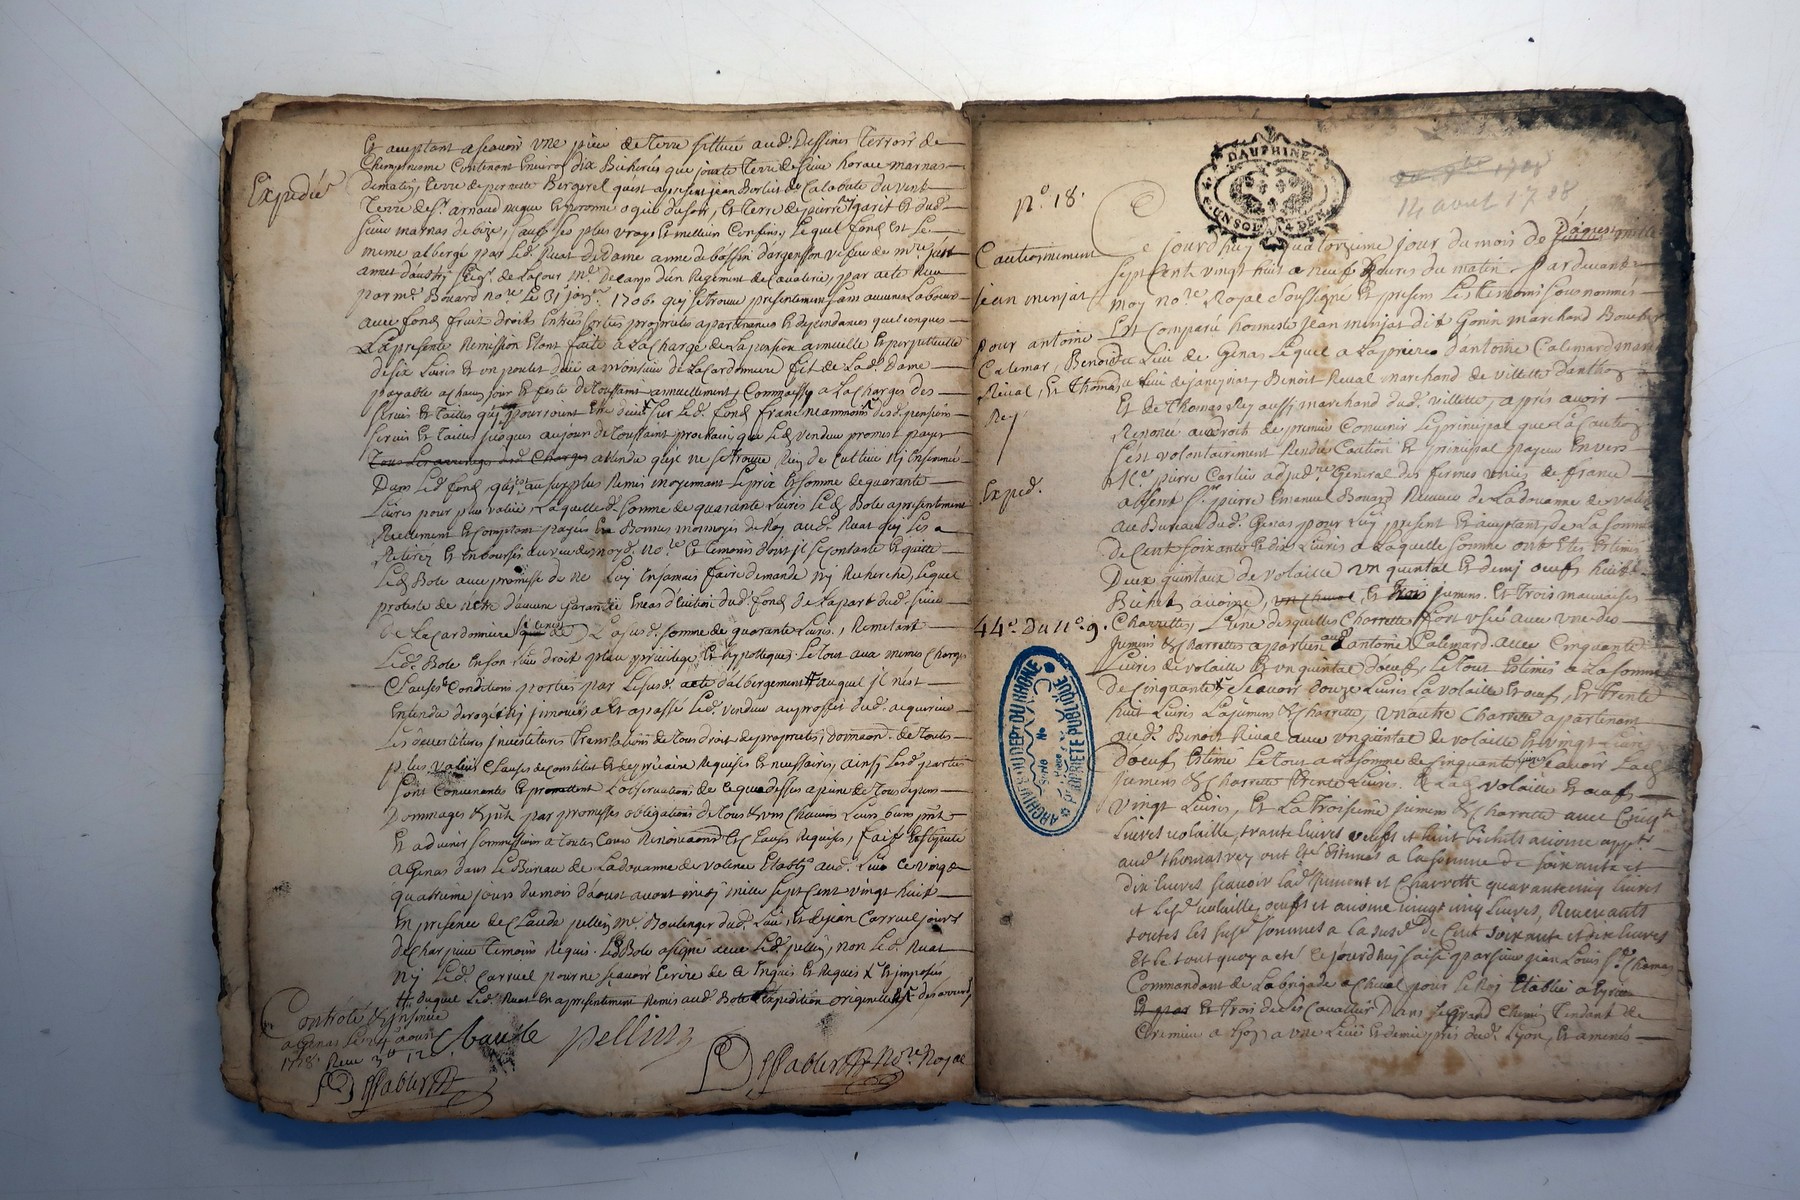 Expedié
Et aceptant ascavoir une piece de terre scittuee aud. Dessines terroir de
contenant environ dix Bicherées que jouxte terre de sieur horace marnas
dematin, terre de pernette Bergerel quest apresent jean de la du vent
terre de Sr. arnaud et du soir, et terre de pierre et dud.
sieur marnas de bize, sauf ses plus vrays et meilleurs Confins, Lequel fond est Le
meme albergé par Led. Ruat de Dame anne de bassin d'argenson veufve de mre. just
Seigr. de Lacour me. de camp d'un Regiment de Cavalerie, par acte Receu
par me. Bouard nore. Le 31 janr. 1706. qui se trouve presentement sans aucune Labeur
avec fond fruit droits Entrées sorties proprietés apartenances et dependances quelconques
La presente Remission etant faite a La charge de La pension annuelle et perpetuelle
de six Livres et un poulet düe a monsieur de La cardonniere fils de Lad. Dame
payable a chaque jour et feste de Toussaint annuellement, Comm'aussy a La charge des
servis et Tailles qui pourroient Etre deües sur Led. fond franc neammoins desd. pensions
servis et Tailles jusques aujour de Toussaint prochain, que Led. vendeur promet payer
Tous Les arrerages desd. Charges attendu qu'il ne se trouve Rien de Cultivé ny Ensemencé
Dans Led. fond, au surplus Remis moyennant Le prix et somme de quarante
Livres pour plus value, Laquelle d. somme de quarante Livres Led. Bole apresentement
Reellement et comptant payée En Bonnes monnoyes de Roy aud. Ruat qui Les a
Retirées et Emboursées au veu de moyd. nore. et temoins dont il se contante et quitte
Led. Bole avec promesse de ne Luy En jamais faire demande ny Recherche, Lequel
proteste de n'etre d'aucune garantie En cas d'eviction dud. fond de La part dud. sieur
de La cardonniere La susd. somme de quarante Livres, Remetant
Led. Bole En son Lieu droit place privilege et hypotteque. Le tout aux mêmes charges
Clauses et Conditions portées par Le susd. acte d'albergement auquel il n'est
Entendu derogé ny innové, a Et a passé Led. vendeur au proffit dud. aquereur
Les devestitures investitures translations de tous droit de proprietés, donnaon. de toutes
plus values Clauses de constitut et de precaire Requises et necessaires, ainsy Lesd. parties
sont Convenante et promettent L'observation de ce que dessus a peine de tous depens
Dommages et par promesses obligations de tous et un chacuns Leurs biens
Et advenir soumissions a toutes Cours Renonciaons. et Clauses Requises, fait et
a Genas dans Le Bureau de La doüanne de valence Etably aud. Lieu Ce vingt
quatrieme jour du mois d'aoust avant midy mille sept cent vingt huit
En presence de Claude pellin me. Boulenger dud. Lieu, et de jean Carruel
de Charpieux temoins Requis. Led. Bole a signé avec Led. pellin, non Led. Ruat
ny Led. Carruel pour ne scavoir Ecrire de ce Enquis et Requis
duquel Led. Ruat En apresentement Remis aud. Bole L'expedition originelle
Controlé et insinué
a Genas Le aoust
1728. Receu
Claude pellin
Nore. Royal
DAUPHINE
UN SOL 4 DEN
1708
14 aout 1728
No. 18.
Cautionnement
jean minjat
pour antoine
Calemar, Benoit
Reval, Et Thomas
Rey
Exped.
44e. Du no. 9.
Ce jourd'huy quatorzieme jour du mois de D'aoust mille
sept cent vingt huit a neuf heures du matin Pardevant
moy nore. Royal soussigné et presens Les temoins sounommés
Est comparü honneste jean minjat dit Gonin marchand Boucher
du Lieu de Genas Lequel a La priere d'antoine Calemard march
du Lieu de janeyriat, Benoit Reval marchand de villette d'anthon
et de Thomas Rey aussy marchand dud. villette, apres avoir
Renoncé au droit de premier Convenir Le principal que La Caution
s'est volontairement Rendu Caution et principal payeur Envers
Me. pierre Carlier adjudre. General des fermes unies de france
absent Sr. pierre Emanuel Bouard Receveur de La doüanne de valence
au Bureau dud. Genas pour Luy present et aceptant, de La somme
de Cent soixante et dix Livres a Laquelle somme ont Eté Estimés
Deux quintaux de volaille un quintal et demy oeufs huit
Bichets avoine, un cheval, et trois jumens. et trois mauvaises
Charrettes, L'une desquelles Charrette fort usée avec une des
jumens et charrettes apartien aud. antoine Calemard avec Cinquante
Livres de volaille et un quintal d'oeufs, Le tout Estimé a La somme
de Cinquante Scavoir douze Livres La volaille et oeufs, et trente
huit Livres La jumens et charrette, un autre Charrette apartenant
aud. Benoit Reval avec un quintal de volaille et vingt Livres
d'oeufs Estimé Le tout a La somme de Cinquante Livres Scavoir Lad.
jumens et charrette trente Livres. et Lad. volaille et oeufs
vingt Livres, et La troisieme jumens et charrette avec Cinqte.
Livres volaille, trante livres oeufs et huit bichets avoine appt.
aud. thomas rey ont été estimés a la somme de soixante et
dix livres scavoir lad. jument et charrette quarante cinq livres
et lesd. volaille, oeufs et avoine vingt cinq livres, Revenants
toutes les susd. sommes a la susd. de Cent soixante et dix livres
Et le tout quoy a eté ce jourd'huy saisi par sieur jean Louis St. thomas
Commandant de La brigade a cheval pour le Roy Etablie a
et trois de ses Cavalliers Dans le grand chemin Tendant de
Cremieu a Lyon a une Lieüe et demie prés dud. Lyon, et amenés
ARCHIVES DU DEPT DU RHÔNE
PROPRIÉTÉ PUBLIQUE